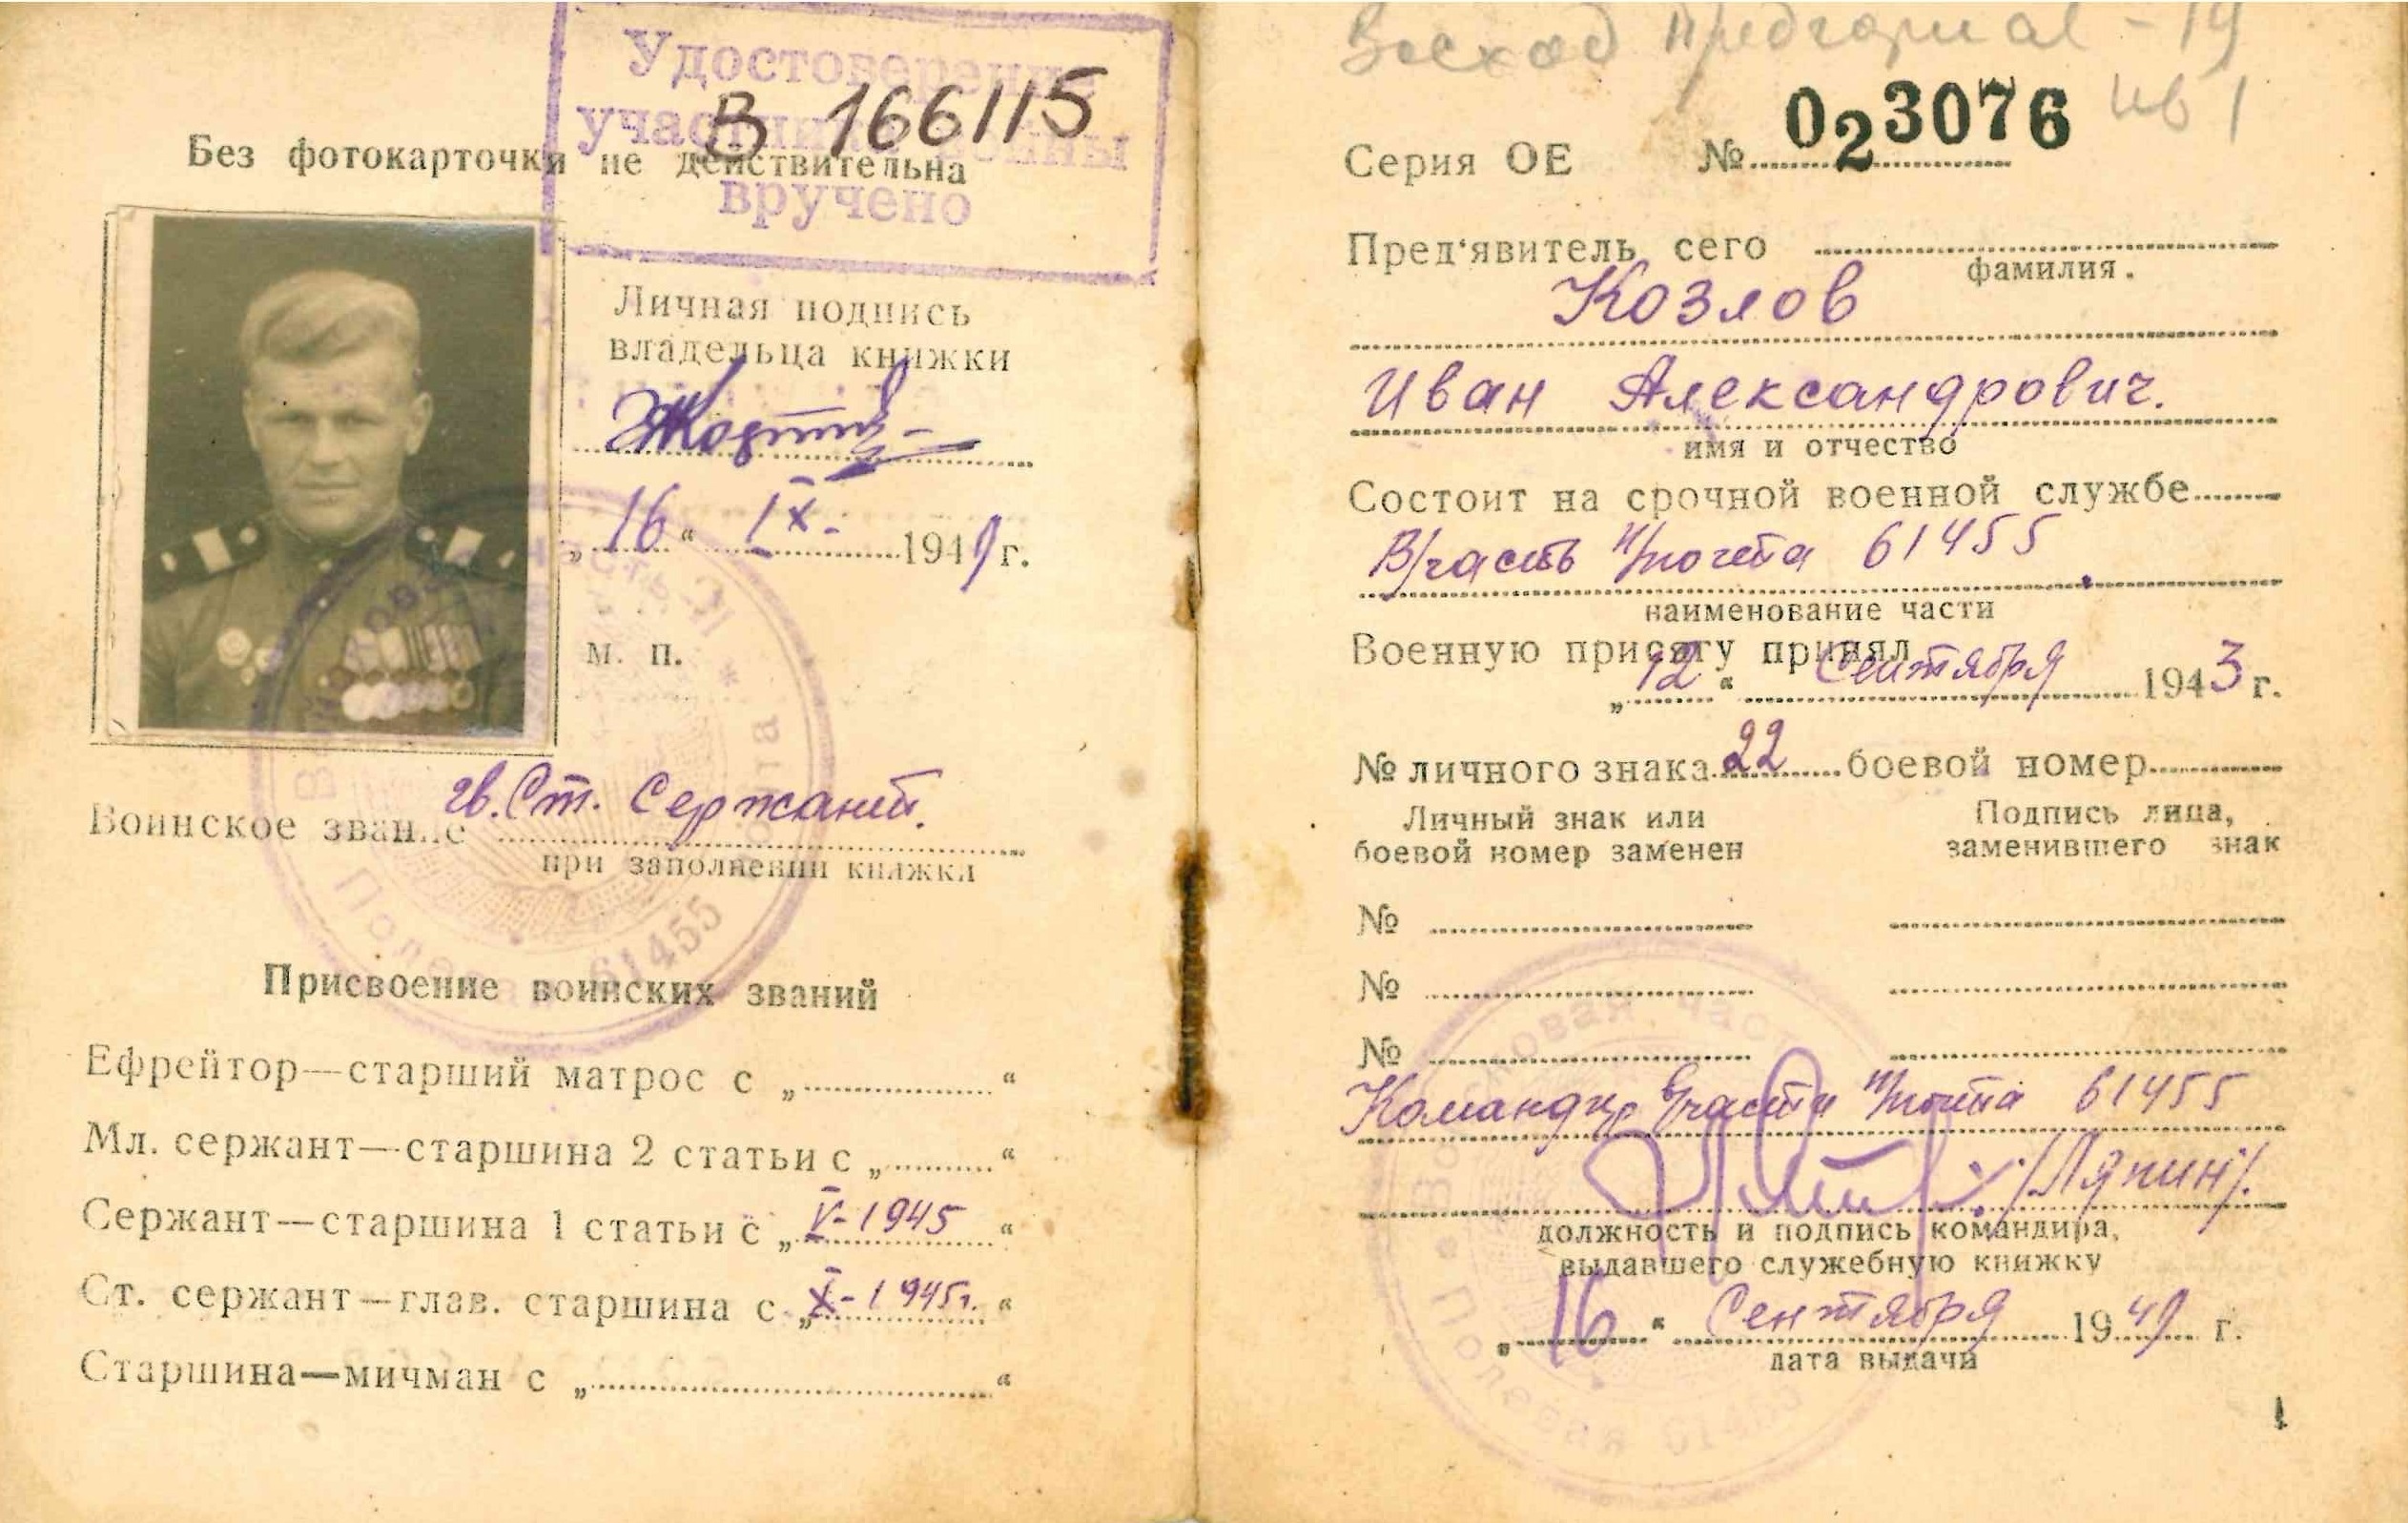 Удостоверение
участника войны
вручено
В 166115
Без фотокарточки не действительна
Личная подпись
владельца книжки
„16“ IX. 1949 г.
М. П.
Воинское звание гв. Ст. Сержант.
при заполнении книжки
Полевая 61455
Присвоение воинских званий
Ефрейтор—старший матрос с „ “
Мл. сержант—старшина 2 статьи с „ “
Сержант—старшина 1 статьи с „V-1945“
Ст. сержант—глав. старшина с „X-1945г.“
Старшина—мичман с „ “
Восход
Серия ОЕ № 023076
Пред‘явитель сего
фамилия.
Козлов
Иван Александрович.
имя и отчество
Состоит на срочной военной службе
В/часть п/почта 61455
наименование части
Военную присягу принял
„12“ Сентября 1943 г.
№ личного знака 22 боевой номер
Личный знак или Подпись лица,
боевой номер заменен заменившего знак
№
№
№
Командир в/части п/почта 61455
/Ляпин/.
должность и подпись командира,
выдавшего служебную книжку
„16“ Сентября 1949 г.
дата выдачи